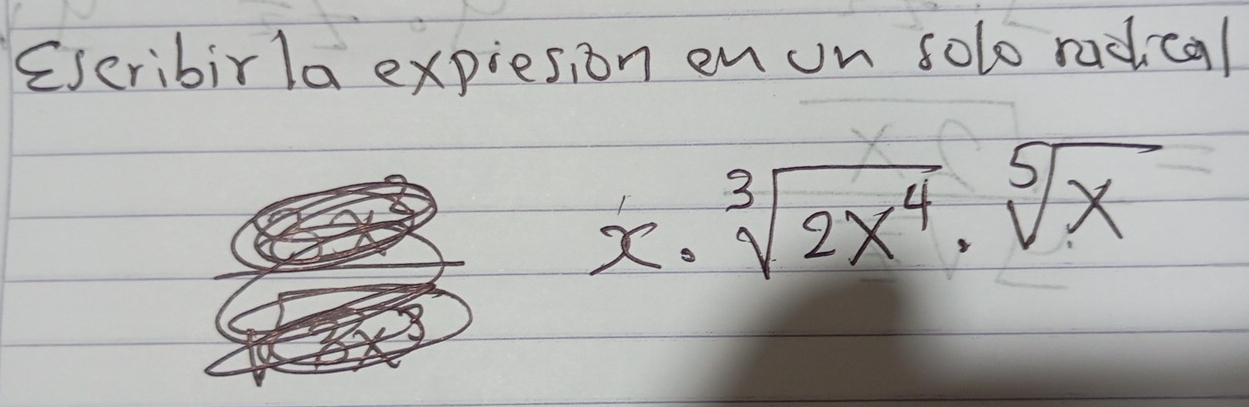 Escribir la expresion en un solo radical
x · ∛(2x⁴) · ⁵√x